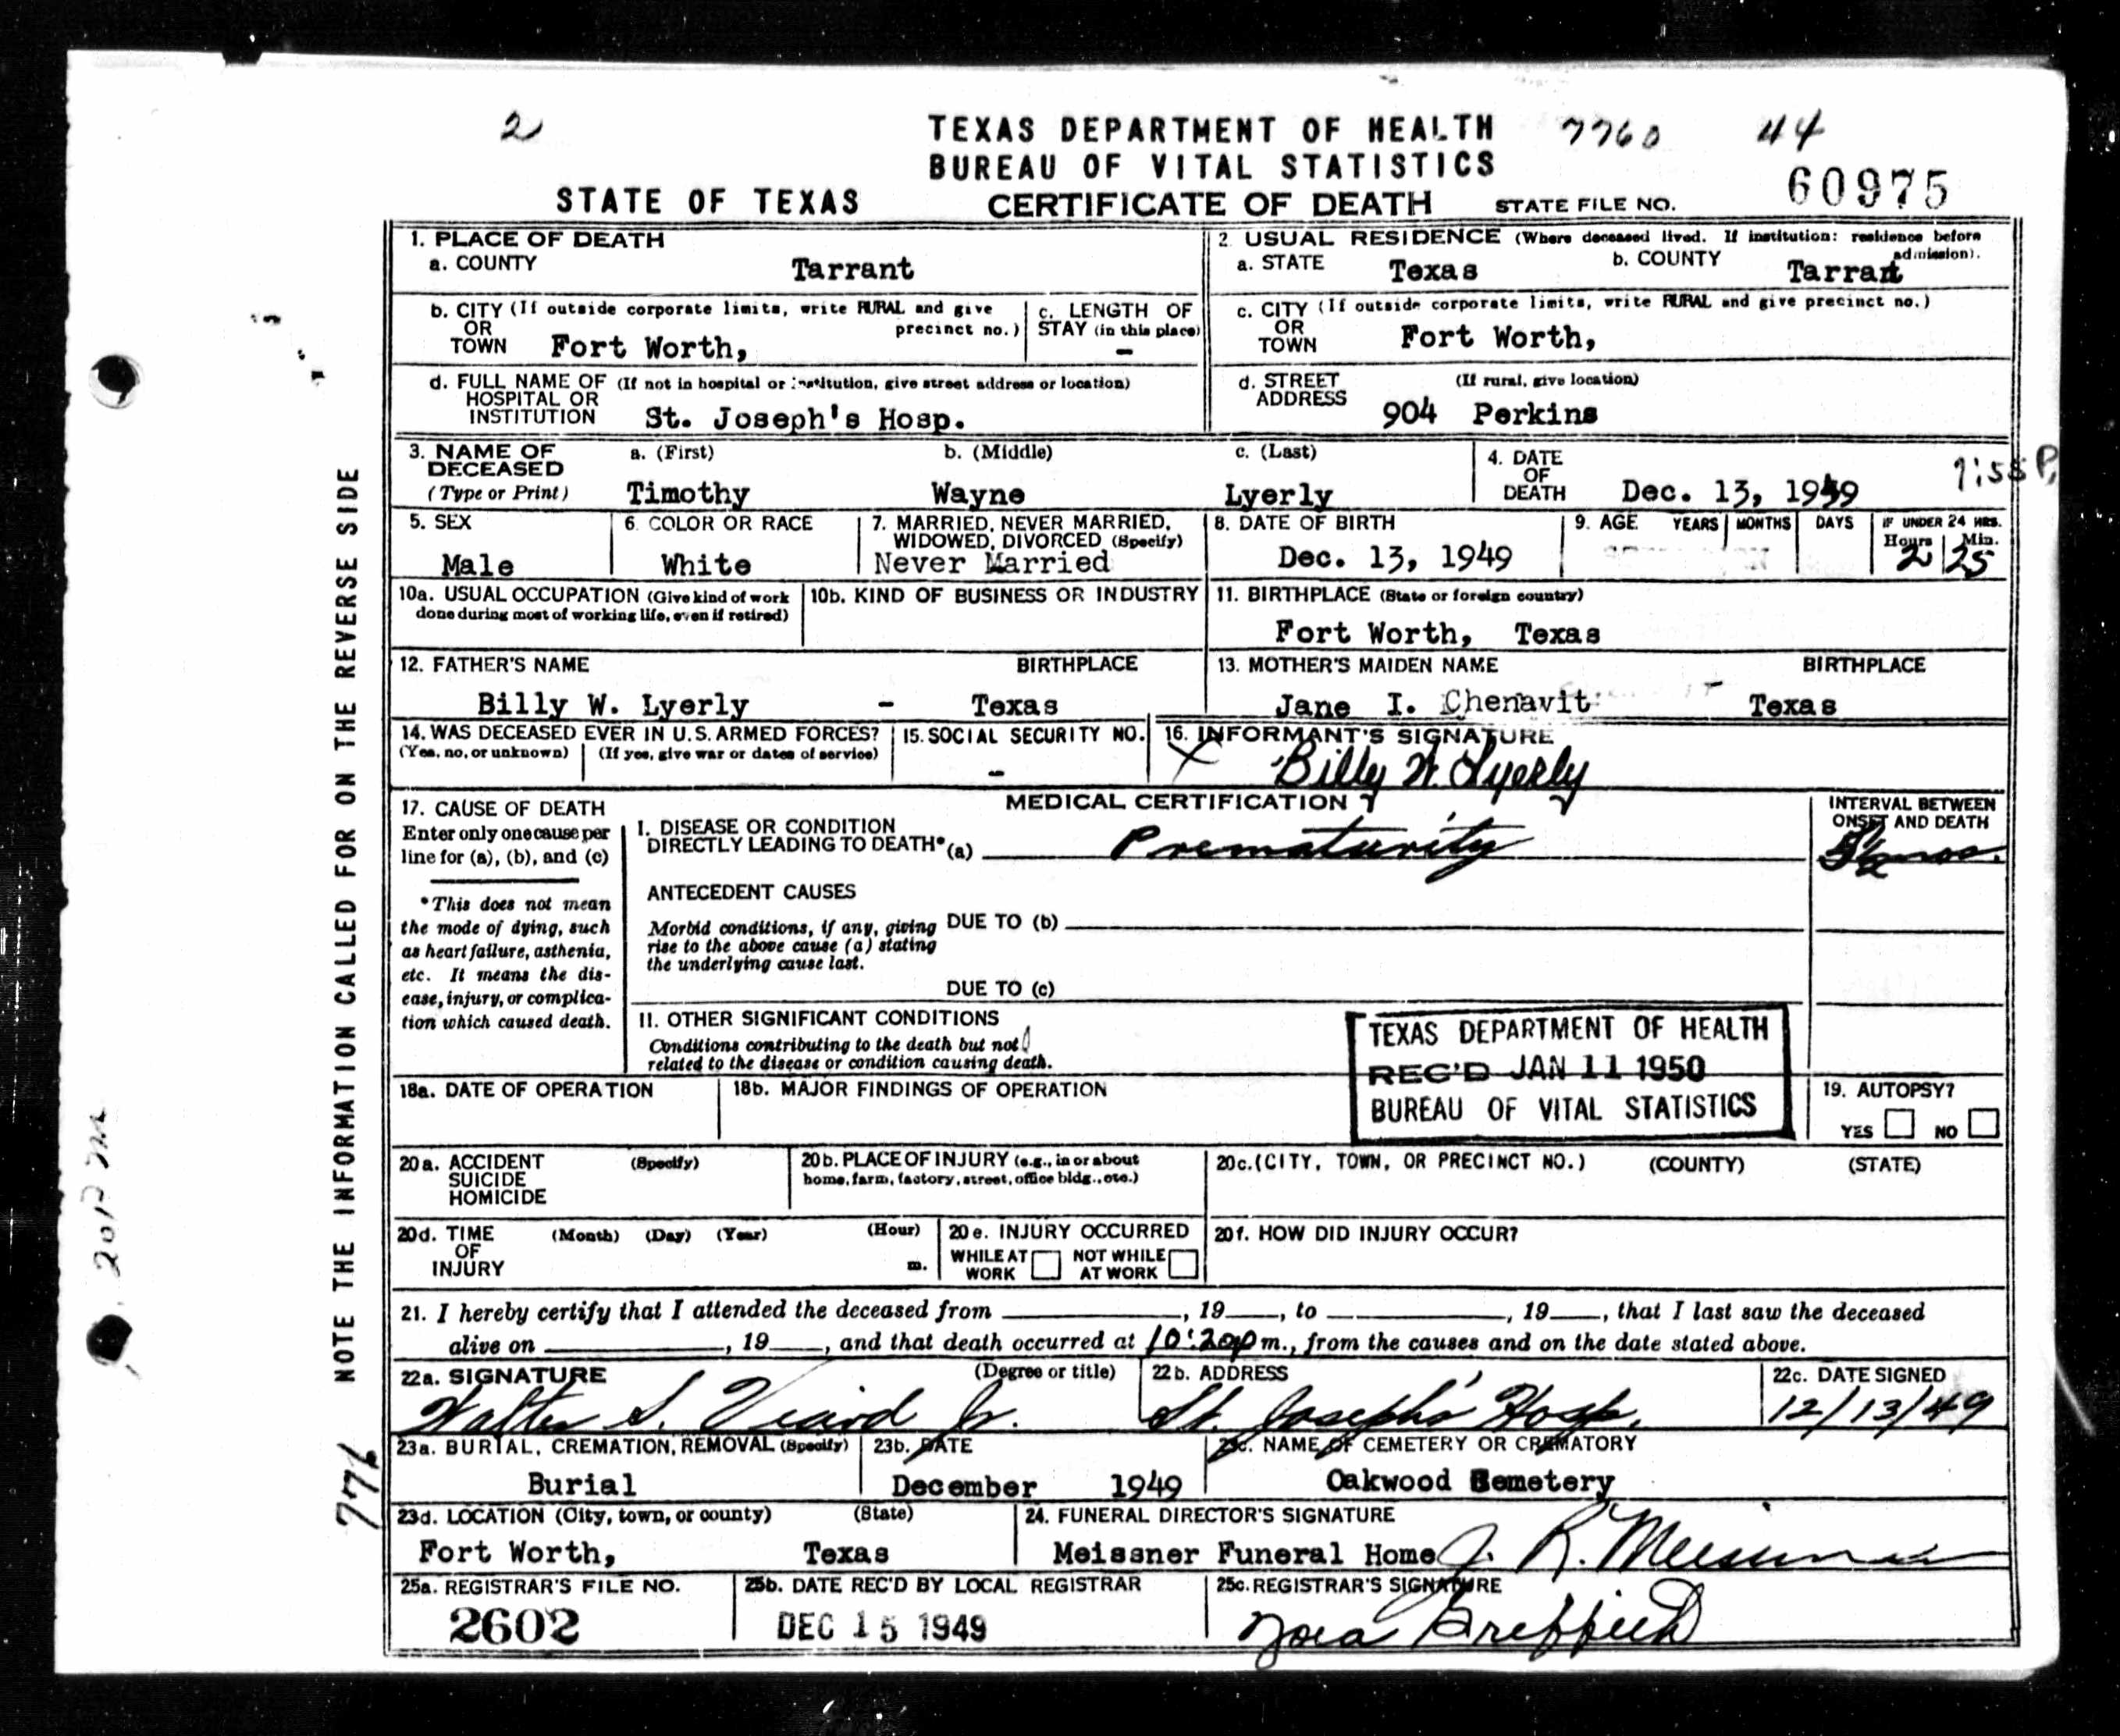 2
TEXAS DEPARTMENT OF HEALTH 7760 44
BUREAU OF VITAL STATISTICS
STATE OF TEXAS CERTIFICATE OF DEATH STATE FILE NO. 60975
NOTE THE INFORMATION CALLED FOR ON THE REVERSE SIDE
776
1. PLACE OF DEATH
a. COUNTY Tarrant
2. USUAL RESIDENCE (Where deceased lived. If institution: residence before admission).
a. STATE Texas b. COUNTY Tarrant
b. CITY (If outside corporate limits, write RURAL and give precinct no.)
OR
TOWN Fort Worth,
c. LENGTH OF
STAY (in this place)
-
c. CITY (If outside corporate limits, write RURAL and give precinct no.)
OR
TOWN Fort Worth,
d. FULL NAME OF (If not in hospital or institution, give street address or location)
HOSPITAL OR
INSTITUTION St. Joseph's Hosp.
d. STREET (If rural, give location)
ADDRESS 904 Perkins
3. NAME OF DECEASED
(Type or Print)
a. (First) Timothy
b. (Middle) Wayne
c. (Last) Lyerly
4. DATE OF DEATH Dec. 13, 1949
5. SEX
Male
6. COLOR OR RACE
White
7. MARRIED, NEVER MARRIED,
WIDOWED, DIVORCED (Specify)
Never Married
8. DATE OF BIRTH
Dec. 13, 1949
9. AGE YEARS MONTHS DAYS IF UNDER 24 HRS.
Hours Min.
2 25
10a. USUAL OCCUPATION (Give kind of work
done during most of working life, even if retired)
10b. KIND OF BUSINESS OR INDUSTRY
11. BIRTHPLACE (State or foreign country)
Fort Worth, Texas
12. FATHER'S NAME BIRTHPLACE
Billy W. Lyerly - Texas
13. MOTHER'S MAIDEN NAME BIRTHPLACE
Jane I. Chenavit Texas
14. WAS DECEASED EVER IN U.S. ARMED FORCES?
(Yes, no, or unknown) (If yes, give war or dates of service)
15. SOCIAL SECURITY NO.
-
16. INFORMANT'S SIGNATURE
X Billy W. Lyerly
17. CAUSE OF DEATH
Enter only one cause per
line for (a), (b), and (c)
*This does not mean
the mode of dying, such
as heart failure, asthenia,
etc. It means the dis-
ease, injury, or complica-
tion which caused death.
MEDICAL CERTIFICATION
I. DISEASE OR CONDITION
DIRECTLY LEADING TO DEATH* (a) Prematurity
INTERVAL BETWEEN
ONSET AND DEATH
ANTECEDENT CAUSES
Morbid conditions, if any, giving
rise to the above cause (a) stating
the underlying cause last.
DUE TO (b)
DUE TO (c)
II. OTHER SIGNIFICANT CONDITIONS
Conditions contributing to the death but not
related to the disease or condition causing death.
TEXAS DEPARTMENT OF HEALTH
REC'D JAN 11 1950
BUREAU OF VITAL STATISTICS
18a. DATE OF OPERATION
18b. MAJOR FINDINGS OF OPERATION
19. AUTOPSY?
YES NO
20a. ACCIDENT (Specify)
SUICIDE
HOMICIDE
20b. PLACE OF INJURY (e.g., in or about
home, farm, factory, street, office bldg., etc.)
20c. (CITY, TOWN, OR PRECINCT NO.) (COUNTY) (STATE)
20d. TIME (Month) (Day) (Year) (Hour)
OF
INJURY m.
20e. INJURY OCCURRED
WHILE AT WORK NOT WHILE AT WORK
20f. HOW DID INJURY OCCUR?
21. I hereby certify that I attended the deceased from , 19 , to , 19 , that I last saw the deceased
alive on , 19 , and that death occurred at 10:20p m., from the causes and on the date stated above.
22a. SIGNATURE (Degree or title)
Walter S. Jr.
22b. ADDRESS
St. Joseph's Hosp.
22c. DATE SIGNED
12/13/49
23a. BURIAL, CREMATION, REMOVAL (Specify)
Burial
23b. DATE
December 1949
23c. NAME OF CEMETERY OR CREMATORY
Oakwood Cemetery
23d. LOCATION (City, town, or county) (State)
Fort Worth, Texas
24. FUNERAL DIRECTOR'S SIGNATURE
Meissner Funeral Home J. R. Meissner
25a. REGISTRAR'S FILE NO.
2602
25b. DATE REC'D BY LOCAL REGISTRAR
DEC 15 1949
25c. REGISTRAR'S SIGNATURE